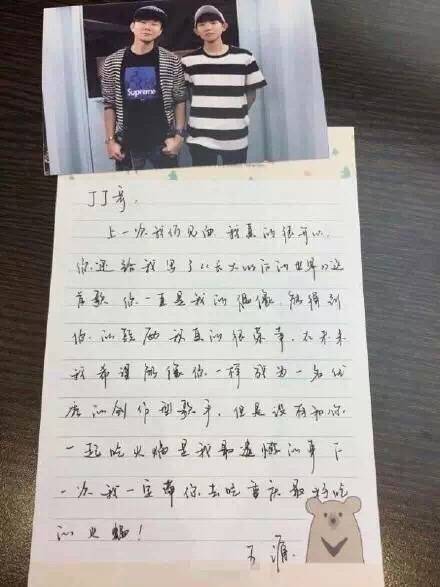 Supreme
JJ哥,
上一次我们见面 我真的很开心,
你还给我写了《长大以后的世界》这
首歌 你一直是我的偶像, 能得到
你的鼓励 我真的很荣幸, 在未来
我希望能像你一样成为一名优
质的创作型歌手, 但是没有和你
一起吃火锅是我最遗憾的事 下
一次我一定带你去吃重庆最好吃
的火锅!
王源